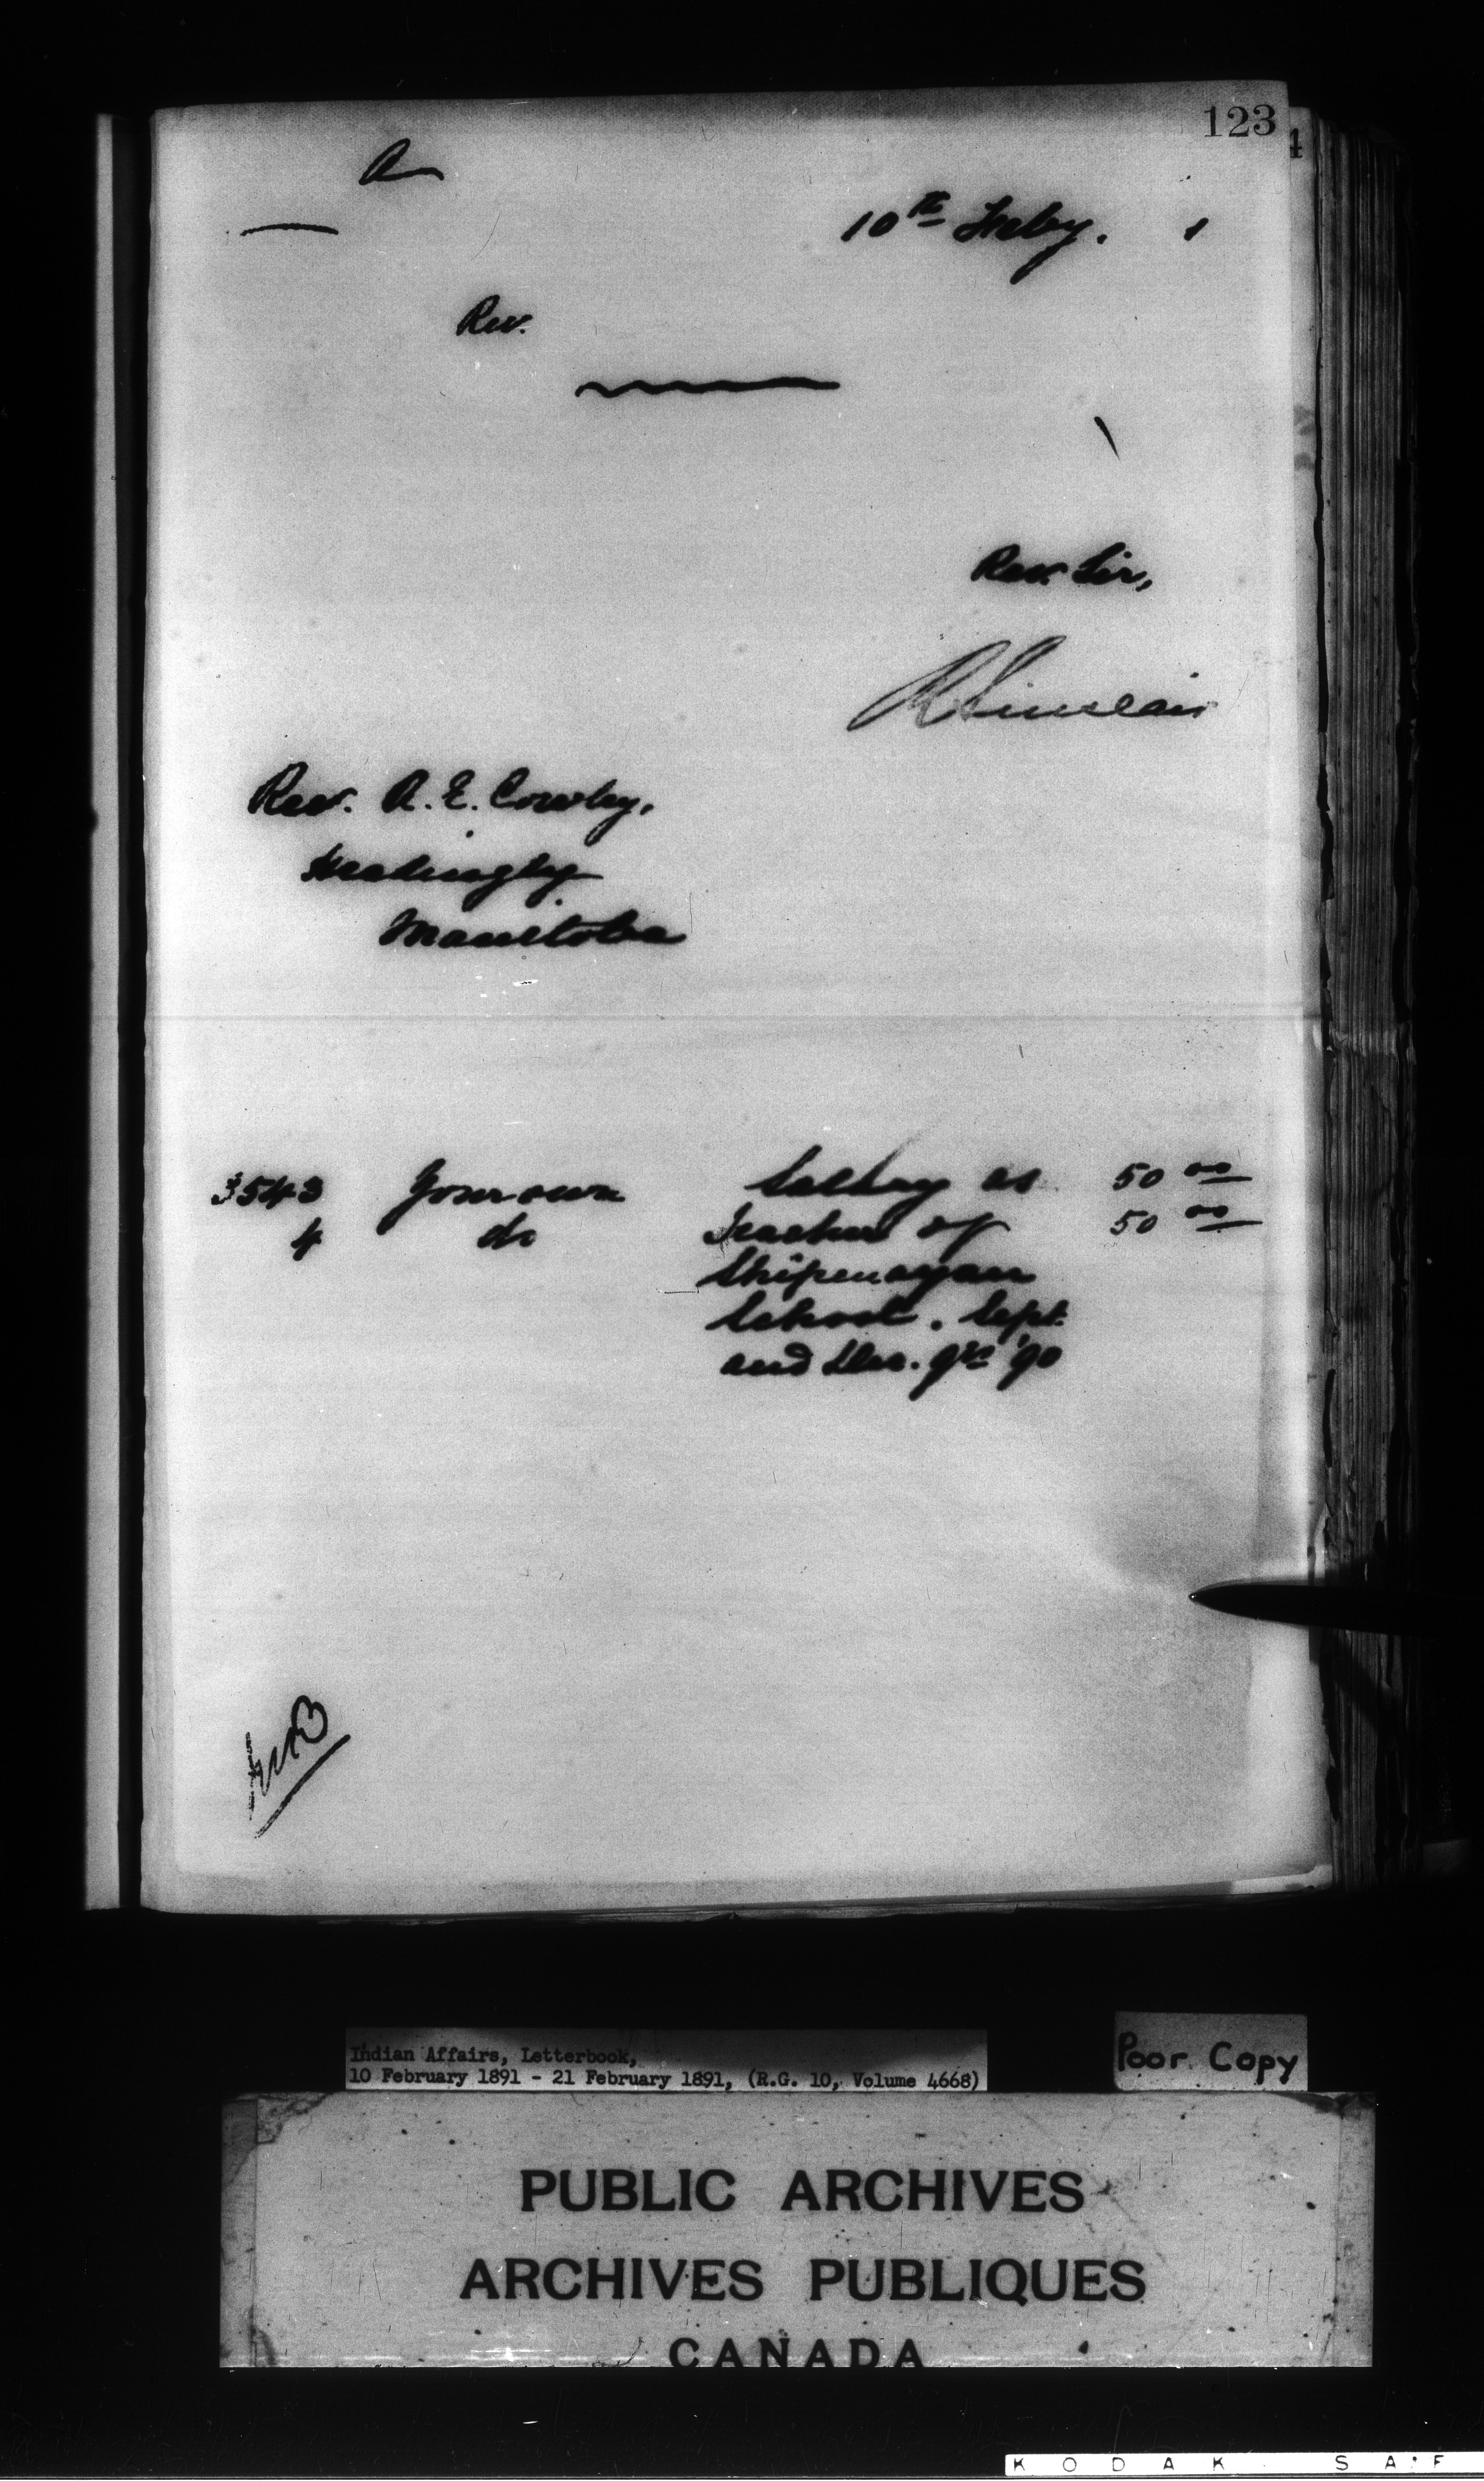 123
4
A
10th Feby. 1
Rev.
Rev. Sir,
R Sinclair
Rev. A. E. Cowley,
Headingly
Manitoba
3543 Your own Salary as 50 00
4 do Teacher of 50 00
School. Sept.
and Dec. qrs '90
Indian Affairs, Letterbook,
10 February 1891 - 21 February 1891, (R.G. 10, Volume 4668)
Poor Copy
PUBLIC ARCHIVES
ARCHIVES PUBLIQUES
CANADA
KODAK SAF